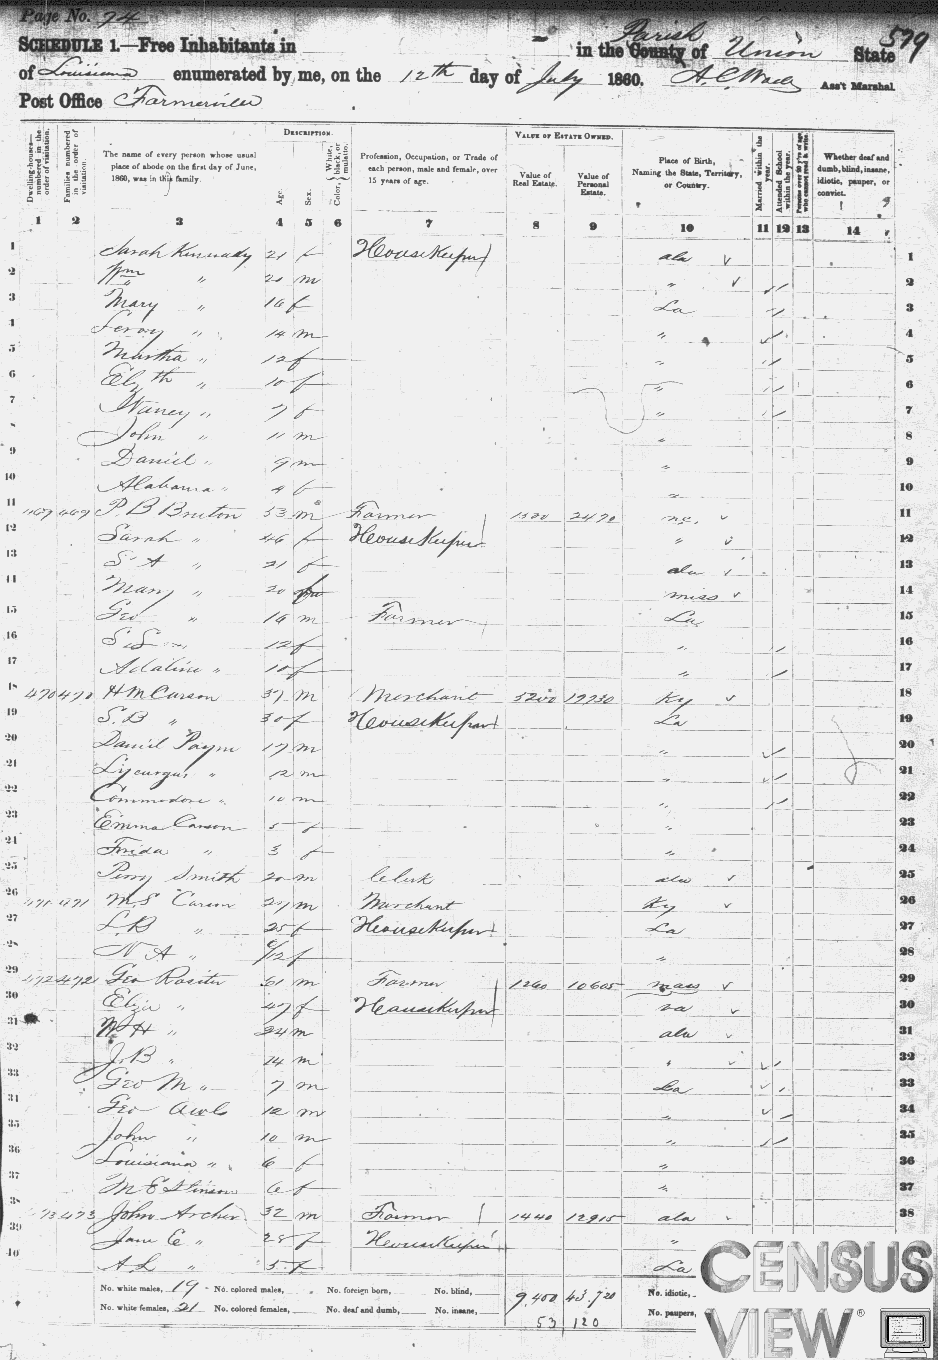 Page No. 74
579
SCHEDULE 1.—Free Inhabitants in in the County of Parish Union State
of Louisiana enumerated by me, on the 12th day of July 1860. Ass't Marshal.
Post Office Farmerville
DESCRIPTION. VALUE OF ESTATE OWNED.
Dwelling-houses—numbered in the order of visitation.
Families numbered in the order of visitation.
The name of every person whose usual place of abode on the first day of June, 1860, was in this family.
Age.
Sex.
Color, White, black, or mulatto.
Profession, Occupation, or Trade of each person, male and female, over 15 years of age.
Value of Real Estate.
Value of Personal Estate.
Place of Birth, Naming the State, Territory, or Country.
Married within the year.
Attended School within the year.
Persons over 20 y'rs of age who cannot read & write.
Whether deaf and dumb, blind, insane, idiotic, pauper, or convict.
1 2 3 4 5 6 7 8 9 10 11 12 13 14
1 Sarah Kennady 21 f HouseKeeper ala 1
2 Wm " 20 m " 2
3 Mary " 16 f La 3
4 " 14 m " 4
5 Martha " 12 f " 5
6 " 10 f " 6
7 " 7 f " 7
8 John " 11 m " 8
9 Daniel " 9 m " 9
10 Alabama " 4 f " 10
11 469 469 P B Bruton 53 m Farmer 2470 n.c. 11
12 Sarah " 46 f HouseKeeper " 12
13 S A " 21 f ala 13
14 Mary " 20 miss 14
15 Geo " 16 m Farmer La 15
16 " 12 f " 16
17 Adaline " 10 f " 17
18 470 470 H M Carson 37 m Merchant 5200 19730 Ky 18
19 S. B " 30 f HouseKeeper La 19
20 Daniel Payne 17 m " 20
21 Lycurgus " 12 m " 21
22 Commodore " 10 m " 22
23 Emma Carson 5 f " 23
24 " 3 f " 24
25 Perry Smith 20 m Clerk ala 25
26 471 471 M. S Carson 27 m Merchant Ky 26
27 L. B " 25 f HouseKeeper La 27
28 N A " /12 f " 28
29 472 472 Geo Rositer 61 m Farmer 1260 10605 mass 29
30 Eliza " 47 f HouseKeeper va 30
31 W H " 24 m ala 31
32 J. B " 14 m " 32
33 Geo M " 7 m La 33
34 Geo Awls 12 m " 34
35 John " 10 m " 35
36 Louisiana " 6 f " 36
37 M E Stinson 6 f " 37
38 473 John Archer 32 m Farmer 1440 12915 ala 38
39 Jane E " 28 f HouseKeeper "
40 A L " 5 f La
No. white males, 19 No. colored males, No. foreign born, No. blind, 9,400 43,720 No. idiotic,
No. white females, 21 No. colored females, No. deaf and dumb, No. insane, No. paupers,
53 120
CENSUS
VIEW ®